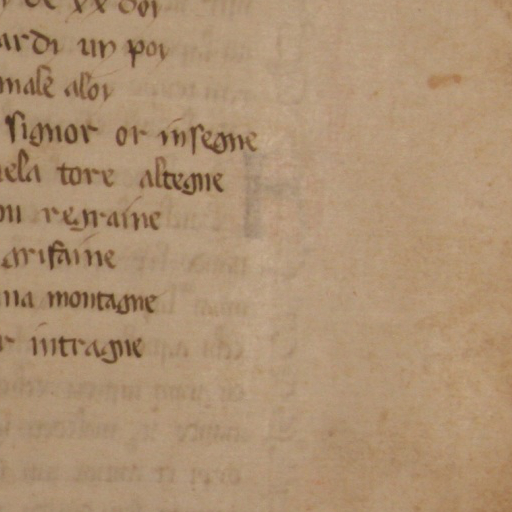 de xx doi
ardi un poi
male aloi
signor or insegne
ela tore altegne
ou regraine
grifaine
na montagne
r intragne